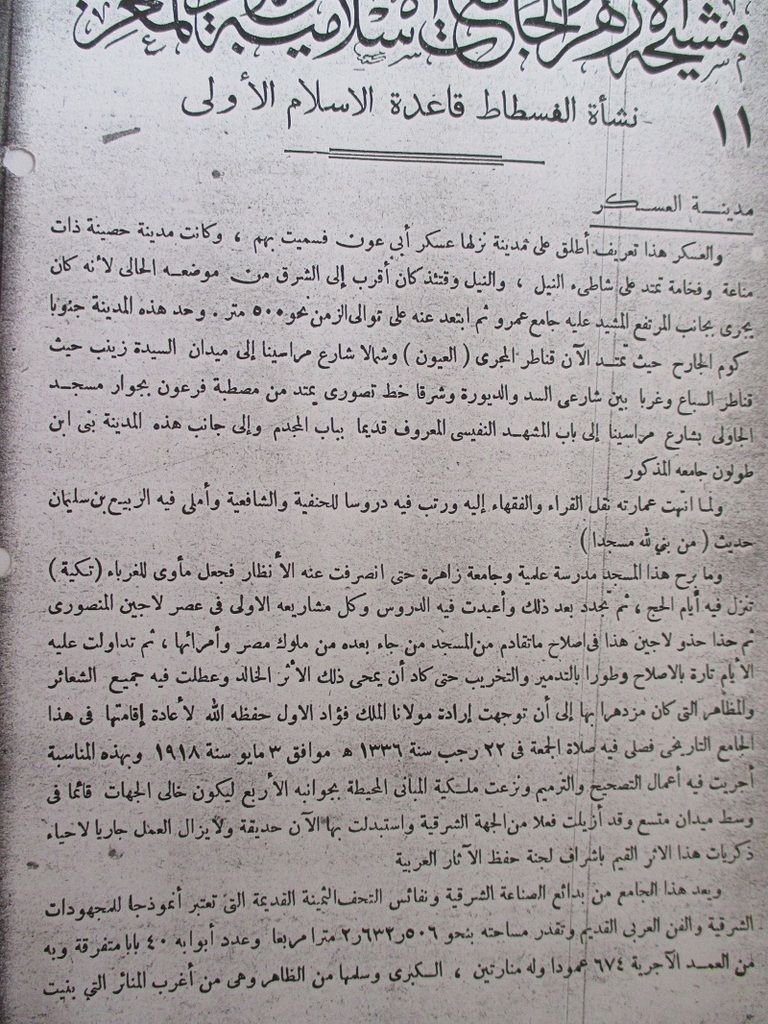 مشيخة الأزهر الجامع الاسلامية
١١ نشأة الفسطاط قاعدة الاسلام الأولى
مدينة العسكر
والعسكر هذا تعريف أطلق على مدينة نزلها عسكر أبي عون فسميت بهم ، وكانت مدينة حصينة ذات
مناعة وفخامة تمتد على شاطىء النيل ، والنيل وقتئذ كان أقرب إلى الشرق من موضعه الحالى لأنه كان
يجرى بجانب المرتفع المشيد عليه جامع عمرو ثم ابتعد عنه على توالى الزمن نحو ٥٠٠ متر . وحد هذه المدينة جنوبا
كوم الجارح حيث تمتد الآن قناطر المجرى ( العيون ) وشمالا شارع مراسينا إلى ميدان السيدة زينب حيث
قناطر السباع وغربا بين شارعى السد والديورة وشرقا خط تصورى يمتد من مصطبة فرعون بجوار مسجد
الجاولى بشارع مراسينا إلى باب المشهد النفيسى المعروف قديما بباب المجدم وإلى جانب هذه المدينة بنى ابن
طولون جامعه المذكور
ولما انتهت عمارته نقل القراء والفقهاء إليه ورتب فيه دروسا للحنفية والشافعية وأملى فيه الربيع بن سليمان
حديث ( من بنى لله مسجدا )
وما برح هذا المسجد مدرسة علمية وجامعة زاهرة حتى انصرفت عنه الأنظار فجعل مأوى للغرباء ( تكية )
تنزل فيه أيام الحج ، ثم تجدد بعد ذلك وأعيدت فيه الدروس وكل مشاريعه الاولى فى عصر لاجين المنصورى
ثم حذا حذو لاجين هذا فى اصلاح ماتقادم من المسجد من جاء بعده من ملوك مصر وأمرائها ، ثم تداولت عليه
الأيام تارة بالاصلاح وطورا بالتدمير والتخريب حتى كاد أن يمحى ذلك الأثر الخالد وعطلت فيه جميع الشعائر
والمظاهر التى كان مزدهرا بها إلى أن توجهت إرادة مولانا الملك فؤاد الاول حفظه الله لأعادة إقامتها فى هذا
الجامع التاريخى فصلى فيه صلاة الجمعة فى ٢٢ رجب سنة ١٣٣٦ ه موافق ٣ مايو سنة ١٩١٨ وبهذه المناسبة
أجريت فيه أعمال التصحيح والترميم ونزعت ملكية المبانى المحيطة بجوانبه الأربع ليكون خالى الجهات قائما فى
وسط ميدان متسع وقد أزيلت فعلا من الجهة الشرقية واستبدلت بها الآن حديقة ولا يزال العمل جاريا لاحياء
ذكريات هذا الاثر القيم باشراف لجنة حفظ الآثار العربية
ويعد هذا الجامع من بدائع الصناعة الشرقية ونفائس التحف الثمينة القديمة التى تعتبر أنموذجا للمجهودات
الشرقية والفن العربى القديم وتقدر مساحته بنحو ٥٠٦ر٢٦٣٢ر٢ مترا مربعا وعدد أبوابه ٤٠ بابا متفرقة وبه
من العمد الآجرية ٦٧٤ عمودا وله منارتين ، الكبرى وسلمها من الظاهر وهى من أغرب المنائر التي بنيت